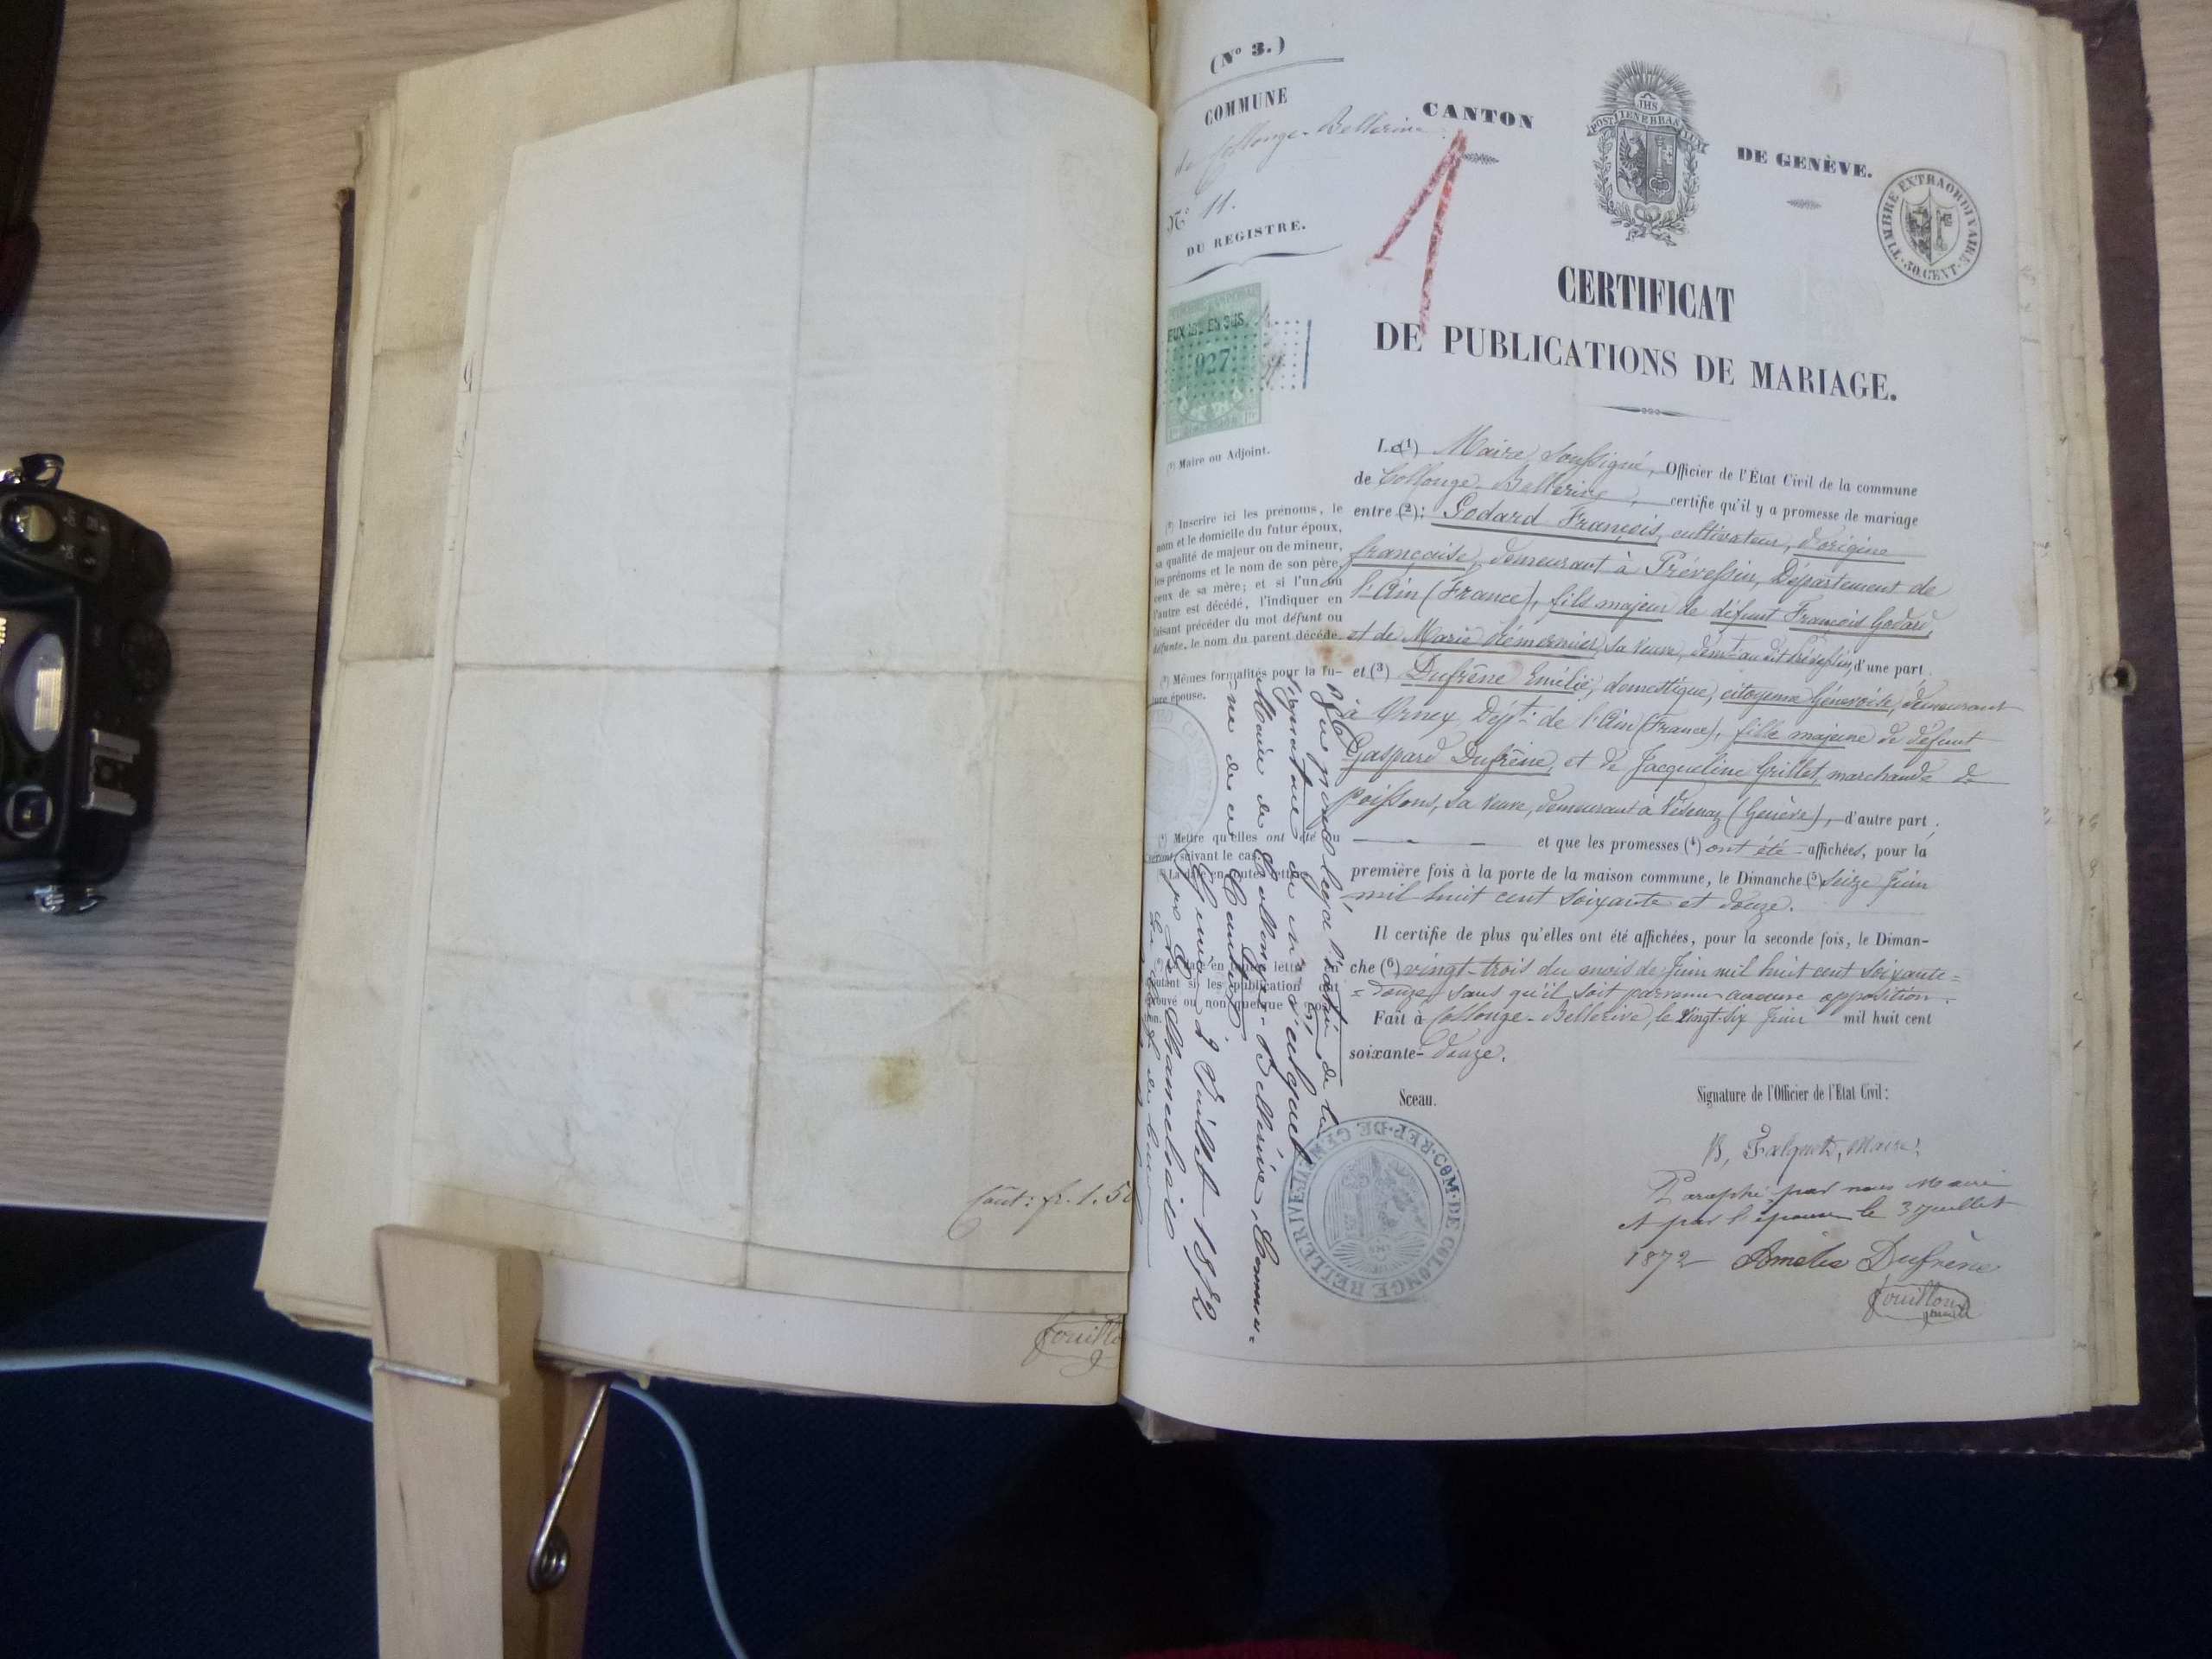 Coût: fr. 1.50
(N° 3.)
COMMUNE
de Collonge-Bellerive
N° 11.
DU REGISTRE.
CANTON
DE GENÈVE.
IHS
POST TENEBRAS LUX
TIMBRE EXTRAORDINAIRE
30. CENT.
1
927
CERTIFICAT
DE PUBLICATIONS DE MARIAGE.
(¹) Maire ou Adjoint.
(²) Inscrire ici les prénoms, le
nom et le domicile du futur époux,
sa qualité de majeur ou de mineur,
les prénoms et le nom de son père,
ceux de sa mère; et si l'un ou
l'autre est décédé, l'indiquer en
faisant précéder du mot défunt ou
défunte, le nom du parent décédé.
(³) Mêmes formalités pour la fu-
ture épouse.
(⁴) Mettre qu'elles ont été ou
seront, suivant le cas.
La date en toutes lettres
Le (1) Maire soussigné, Officier de l'État Civil de la commune
de Collonge-Bellerive, certifie qu'il y a promesse de mariage
entre (2): Godard François, cultivateur, d'origine
française, demeurant à Prévessin, Département de
l'Ain (France), fils majeur de défunt François Godard,
et de Marie, sa veuve, demt audit Prévessin, d'une part.
et (3) Dufrêne Emélie, domestique, citoyenne Genevoise, demeurant
à Ornex, Dépt: de l'Ain (France), fille majeure de défunt
Gaspard Dufrêne, et de Jacqueline Grillet, marchande de
poissons, sa veuve, demeurant à Vésenaz (Genève), d'autre part.
et que les promesses (4) ont été affichées, pour la
première fois à la porte de la maison commune, le Dimanche (5) seize Juin
mil huit cent soixante et douze.
Il certifie de plus qu'elles ont été affichées, pour la seconde fois, le Diman-
che (6) vingt-trois du mois de Juin mil huit cent soixante=
=douze, sans qu'il soit parvenu aucune opposition.
Fait à Collonge-Bellerive, le vingt-six Juin mil huit cent
soixante-douze.
Sceau.
Signature de l'Officier de l'État Civil:
Falquet, Maire.
Paraphé par nous Maire
et par l'épouse le 3 juillet
1872 Amélie Dufrène
Fouilloux
REP. DE GENÈVE COM. DE COLONGE BELLERIVE
Vu pour légalisation de la
signature de Mr Falquet
Maire de Collonge-Bellerive, Commu=
ne de ce Canton
Genève 2 Juillet 1872
Chancelier
Fouillo